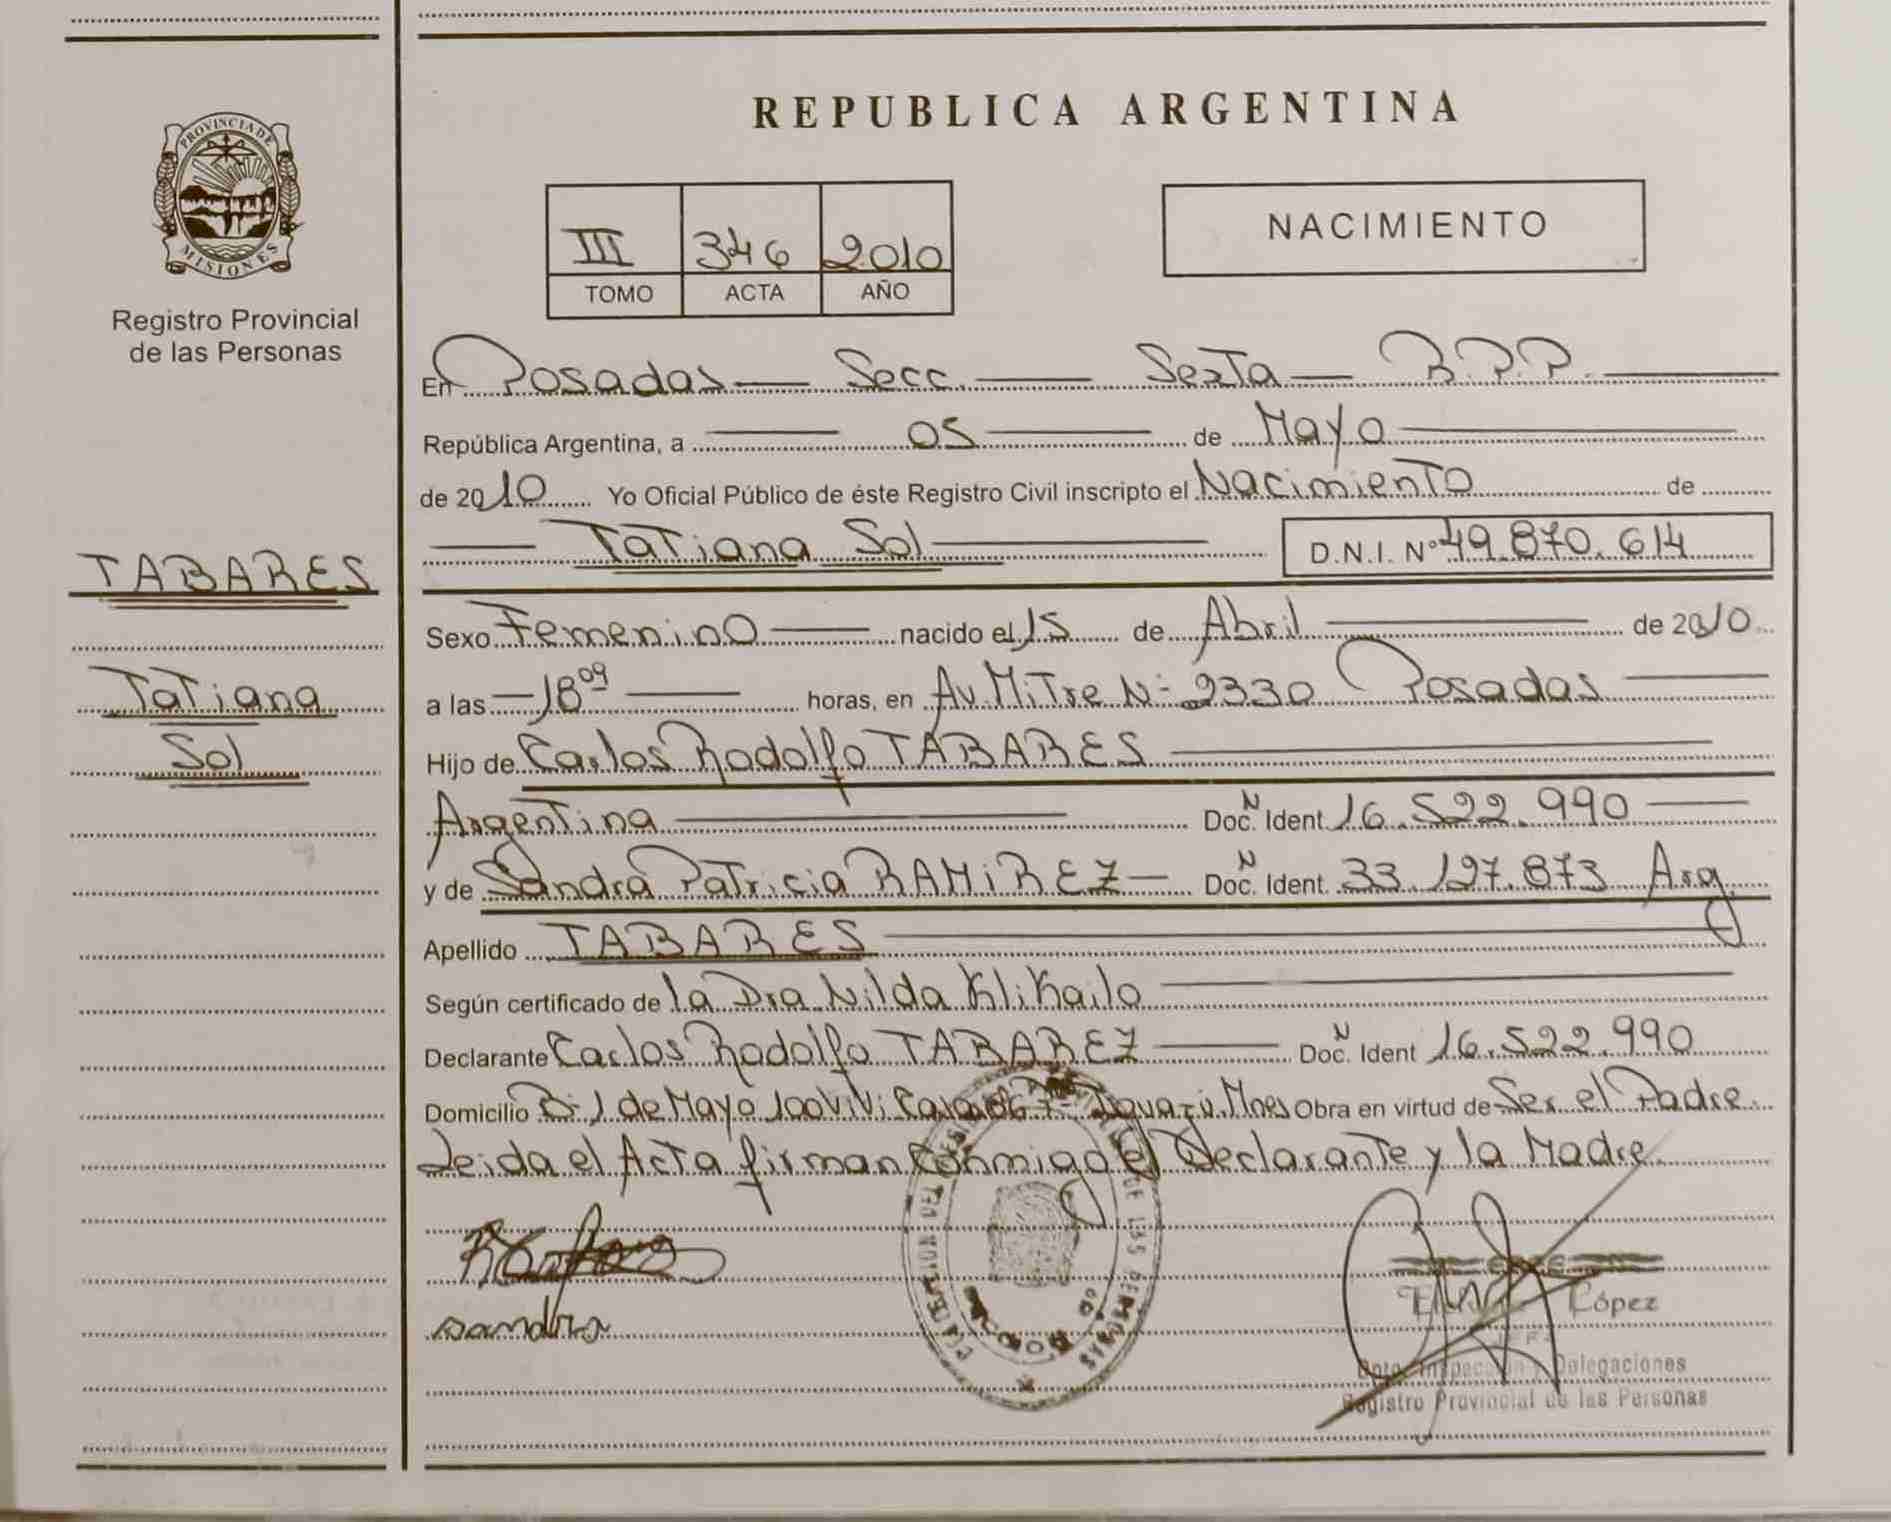 REPUBLICA ARGENTINA
PROVINCIA DE MISIONES
Registro Provincial
de las Personas
III 346 2010
TOMO ACTA AÑO
NACIMIENTO
En Posadas Secc. Sexta R.P.P.
República Argentina, a 05 de Mayo
de 2010 Yo Oficial Público de éste Registro Civil inscripto el Nacimiento de
Tatiana Sol D.N.I. Nº 49.870.614
TABARES
Tatiana
Sol
Sexo Femenino nacido el 15 de Abril de 2010
a las 18 09 horas, en Av. Mitre Nº 2330 Posadas
Hijo de Carlos Rodolfo TABARES
Argentina Doc. N Ident 16.522.990
y de Sandra Patricia RAMIREZ Doc. N Ident. 33.127.873 Arg.
Apellido TABARES
Según certificado de la Dra Nilda Klikailo
Declarante Carlos Rodolfo TABAREZ Doc. N Ident 16.522.990
Domicilio Bº 1 de Mayo 100 Viv. Casa Iguazú. Mnes Obra en virtud de Ser el Padre.
Leida el Acta firman conmigo el Declarante y la Madre.
sandra
López
JEFE
Dpto. Inspección y Delegaciones
Registro Provincial de las Personas
DE LAS PERSONAS